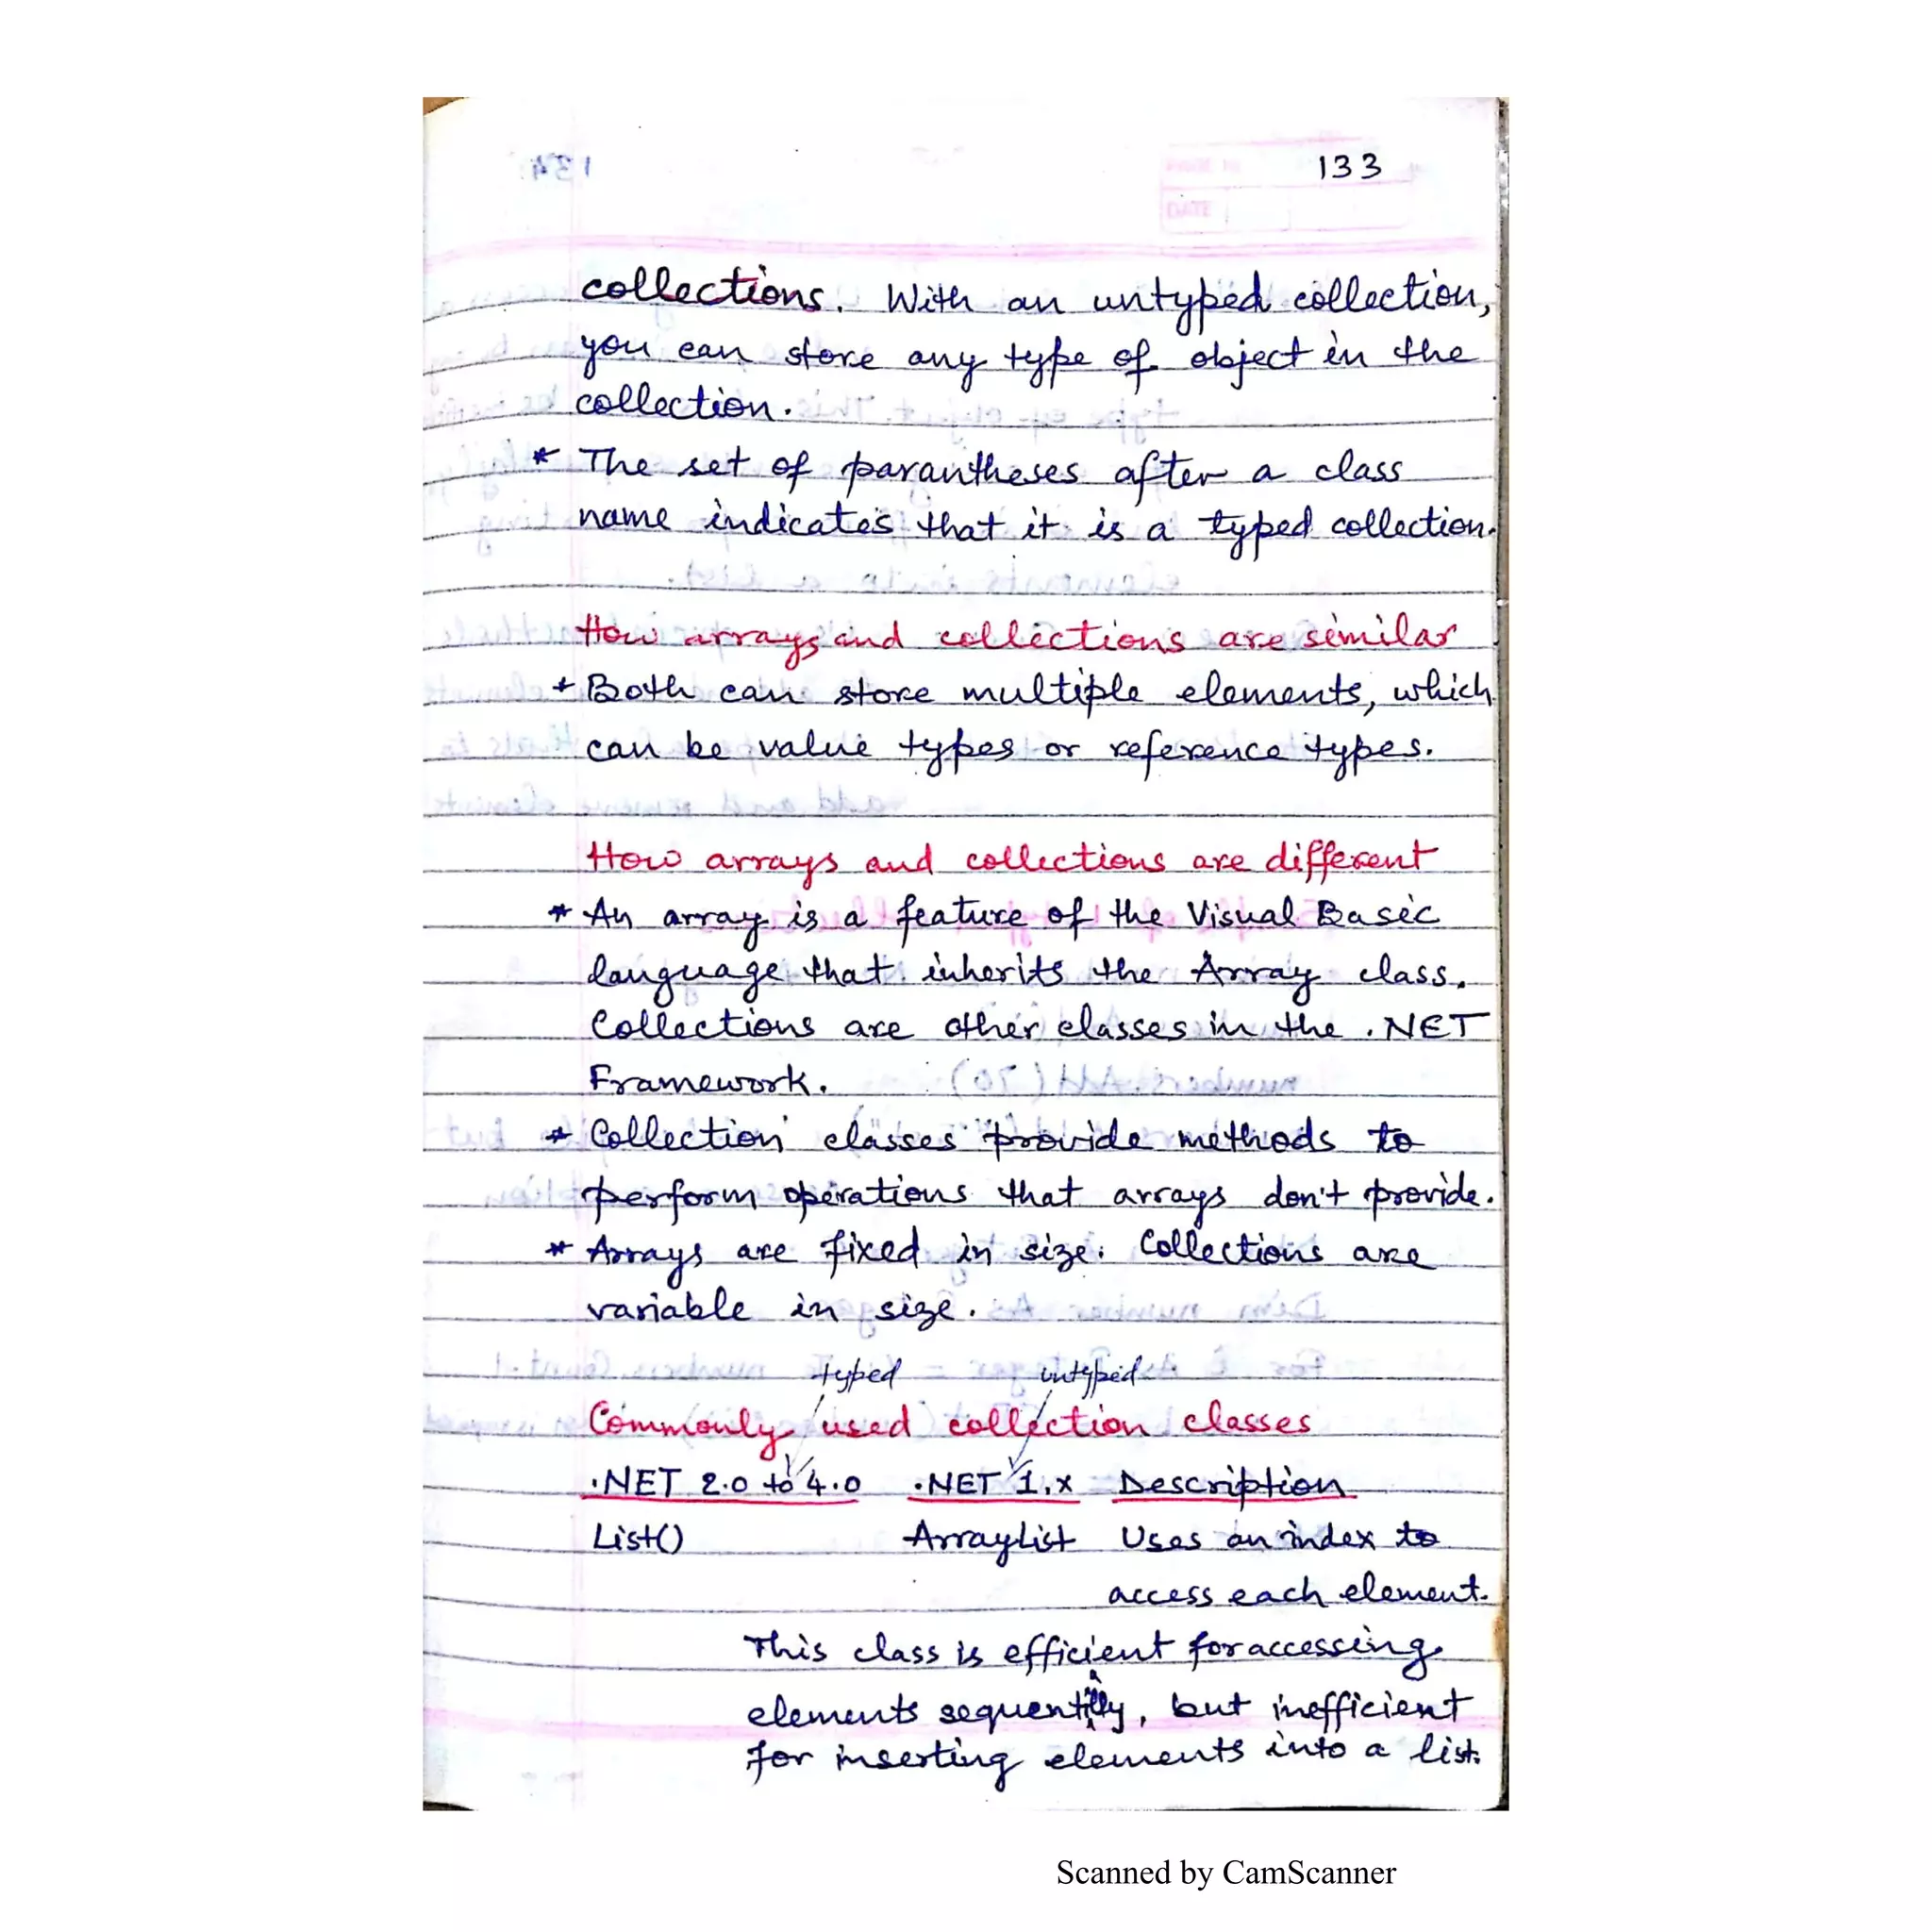 133
collections. With an untyped collection,
you can store any type of object in the
collection.
* The set of parantheses after a class
name indicates that it is a typed collection.
How arrays and collections are similar
* Both can store multiple elements, which
can be value types or reference types.
How arrays and collections are different
* An array is a feature of the Visual Basic
language that inherits the Array class.
Collections are other classes in the .NET
Framework.
* Collection classes provide methods to
perform operations that arrays don't provide.
* Arrays are fixed in size. Collections are
variable in size.
typed untyped
Commonly used collection classes
.NET 2.0 to 4.0 .NET 1.x Description
List() ArrayList Uses an index to
access each element.
This class is efficient for accessing
elements sequentially, but inefficient
for inserting elements into a list.
Scanned by CamScanner